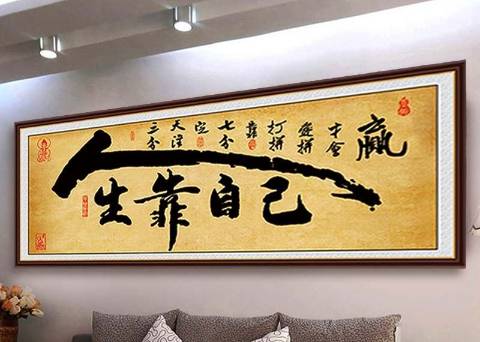 三分天注定七分靠打拼愛拼才會赢
人生靠自己